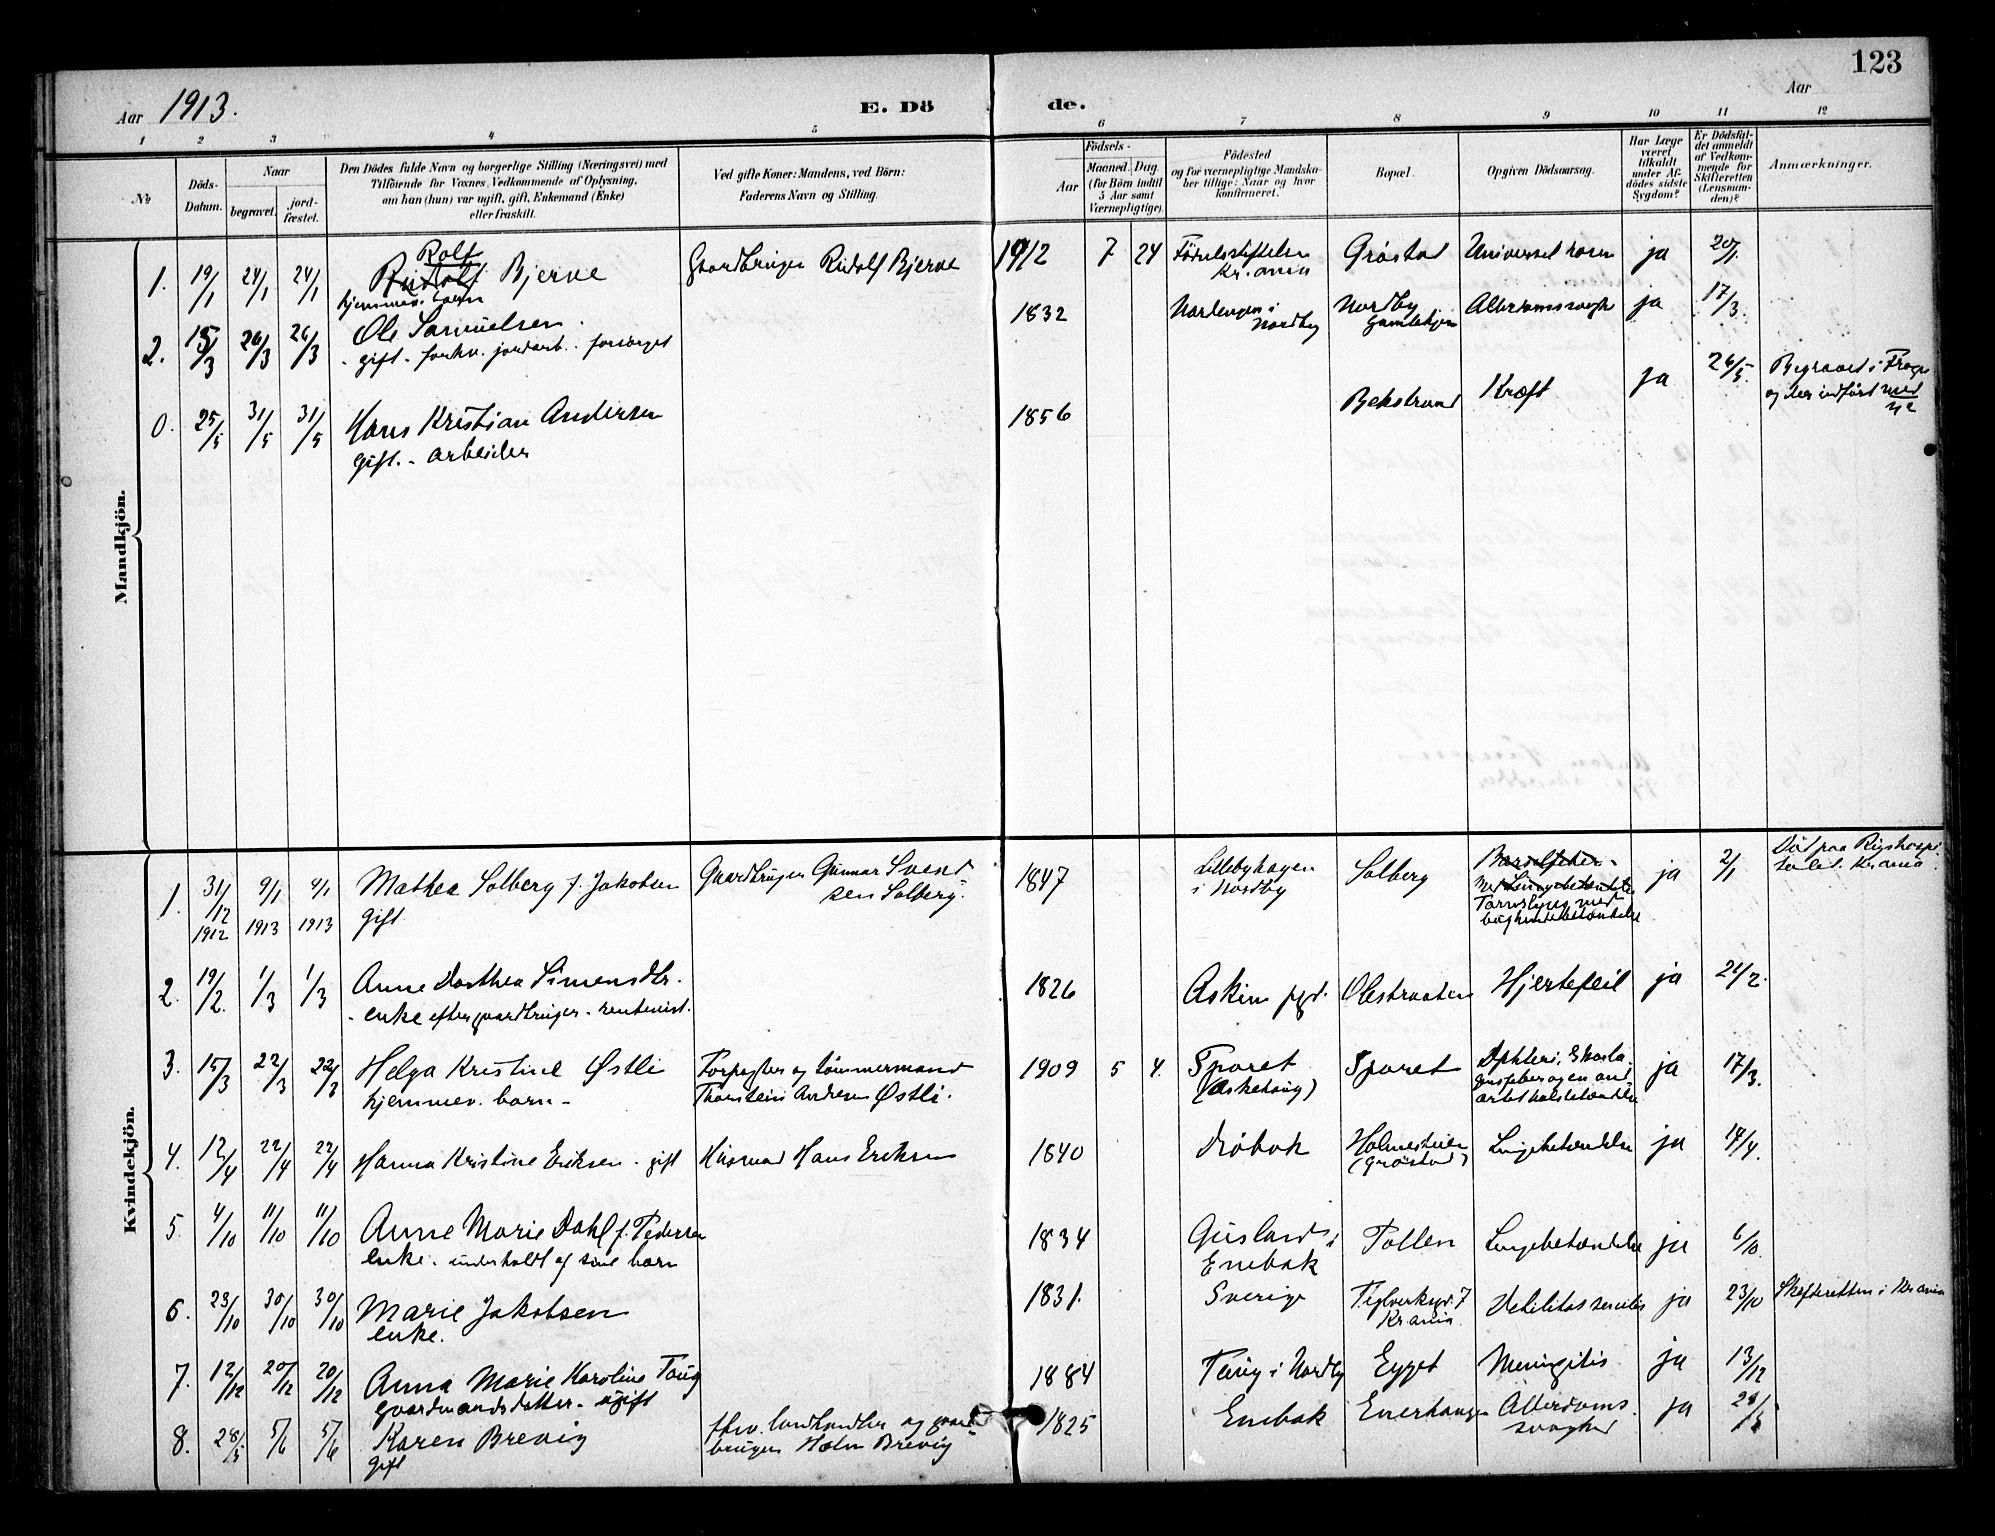 123
Aar 1913.
E. Dö de.
Aar
1 2 3 4 5 6 7 8 9 10 11 12
No
Döds-Datum.
Naar
begravet.
jord-fæstet.
Den Dödes fulde Navn og borgerlige Stilling (Næringsvei) med
Tilföiende for Voxnes Vedkommende af Oplysning,
om han (hun) var ugift, gift, Enkemand (Enke)
eller fraskilt.
Ved gifte Koner: Mandens, ved Börn:
Faderens Navn og Stilling.
Födsels-
Aar
Maaned. Dag.
(for Börn indtil
5 Aar samt
Værnepligtige).
Födested
og for værnepligtige Mandska-
ber tillige: Naar og hvor
konfirmeret.
Bopæl.
Opgiven Dödsaarsag.
Har Læge
været
tilkaldt
under Af-
dødes sidste
Sygdom?
Er Dödsfal-
det anmeldt
af Vedkom-
mende for
Skifteretten
(Lensman-
den)?
Anmærkninger.
Mandkjön.
Rolf
1. 19/1 24/1 24/1 Rudolf Bjerve Gaardbruger Rudolf Bjerve 1912 7 24 Fødselsstiftelsen Grøstad ja 20/1.
hjemmev. barn Kr.ania
2. 15/3 26/3 26/3 Ole Samuelsen 1832 Nordby Alderdomssvagh ja 17/3.
- gift - forhv. jordarb. forsørget i Nordby
0. 25/5 31/5 31/5 Hans Kristian Andersen 1856 Bekstrand Kræft ja 26/5. Begravet i Frogn
gift. - arbeider og der indført med
Kvindekjön.
1. 31/12 1912 9/1 1913 9/1 1913 Mathea Solberg f. Jakobsen Gaardbruger Gunnar Svend 1847 Lillebyhagen Solberg Barselfeber ja 2/1 Død paa Rigshospi-
gift sen Solberg. i Nordby Tarmslyng med talet. Kr.ania
bughindebetændelse
2. 19/2. 1/3 1/3 Anne Dorthea Simensdtr. 1826 Askim pgd. Olestraaten Hjertefeil ja 21/2.
- enke efter gaardbruger - rentenist.
3. 15/3 22/3 22/3 Helga Kristine Østli Forpagter og tømmermand 1909 5 4. Sporet Sporet Dphteri, Skarla- ja 17/3.
hjemmev. barn - Thorstein Andersen Østli. (Askehaug) gensfeber og en ond-
artet halsbetændelse
4. 12/4 22/4 22/4 Hanna Kristine Eriksen - gift Husmand Hans Eriksen 1840 Drøbak Holmesteien Lungebetændelse ja 14/4.
(Grøstad)
5. 4/10 11/10 11/10 Anne Marie Dahl f. Pedersen 1834 i Tollen Lungebetændelse ja 6/10.
enke. underholdt af sine barn Enebak
6. 23/10 30/10 30/10 Marie Jakobsen 1831. Sverige Teglverksgd. 7 Debilitas senilis ja 23/10 Skifteretten i Kr.ania
enke. Kr.ania.
7. 12/12 20/12 20/12 Anna Marie Karoline Taug 1884 Taug i Nordby Egget Meningitis ja 13/12
gaardmandsdatter - ugift
8. 28/5 5/6 5/6 Karen Brevig fhv. landhandler og gaard- 1825 Enebak Enerhaugen Alderdoms- ja 29/5
Gift bruger Halv Brevig svaghed